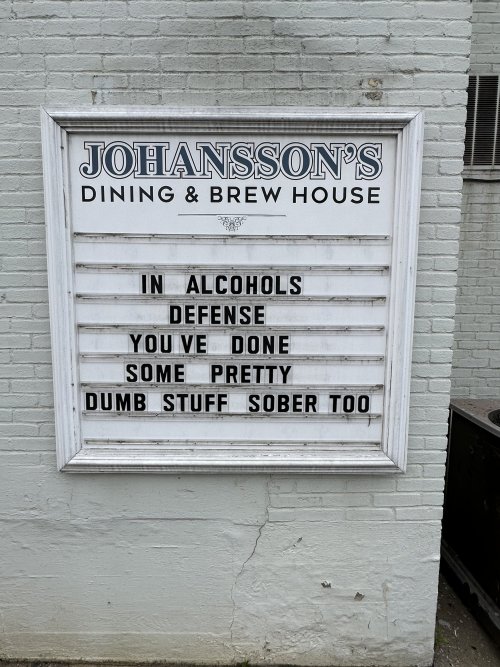 JOHANSSON'S
DINING & BREW HOUSE
IN ALCOHOLS
DEFENSE
YOU VE DONE
SOME PRETTY
DUMB STUFF SOBER TOO